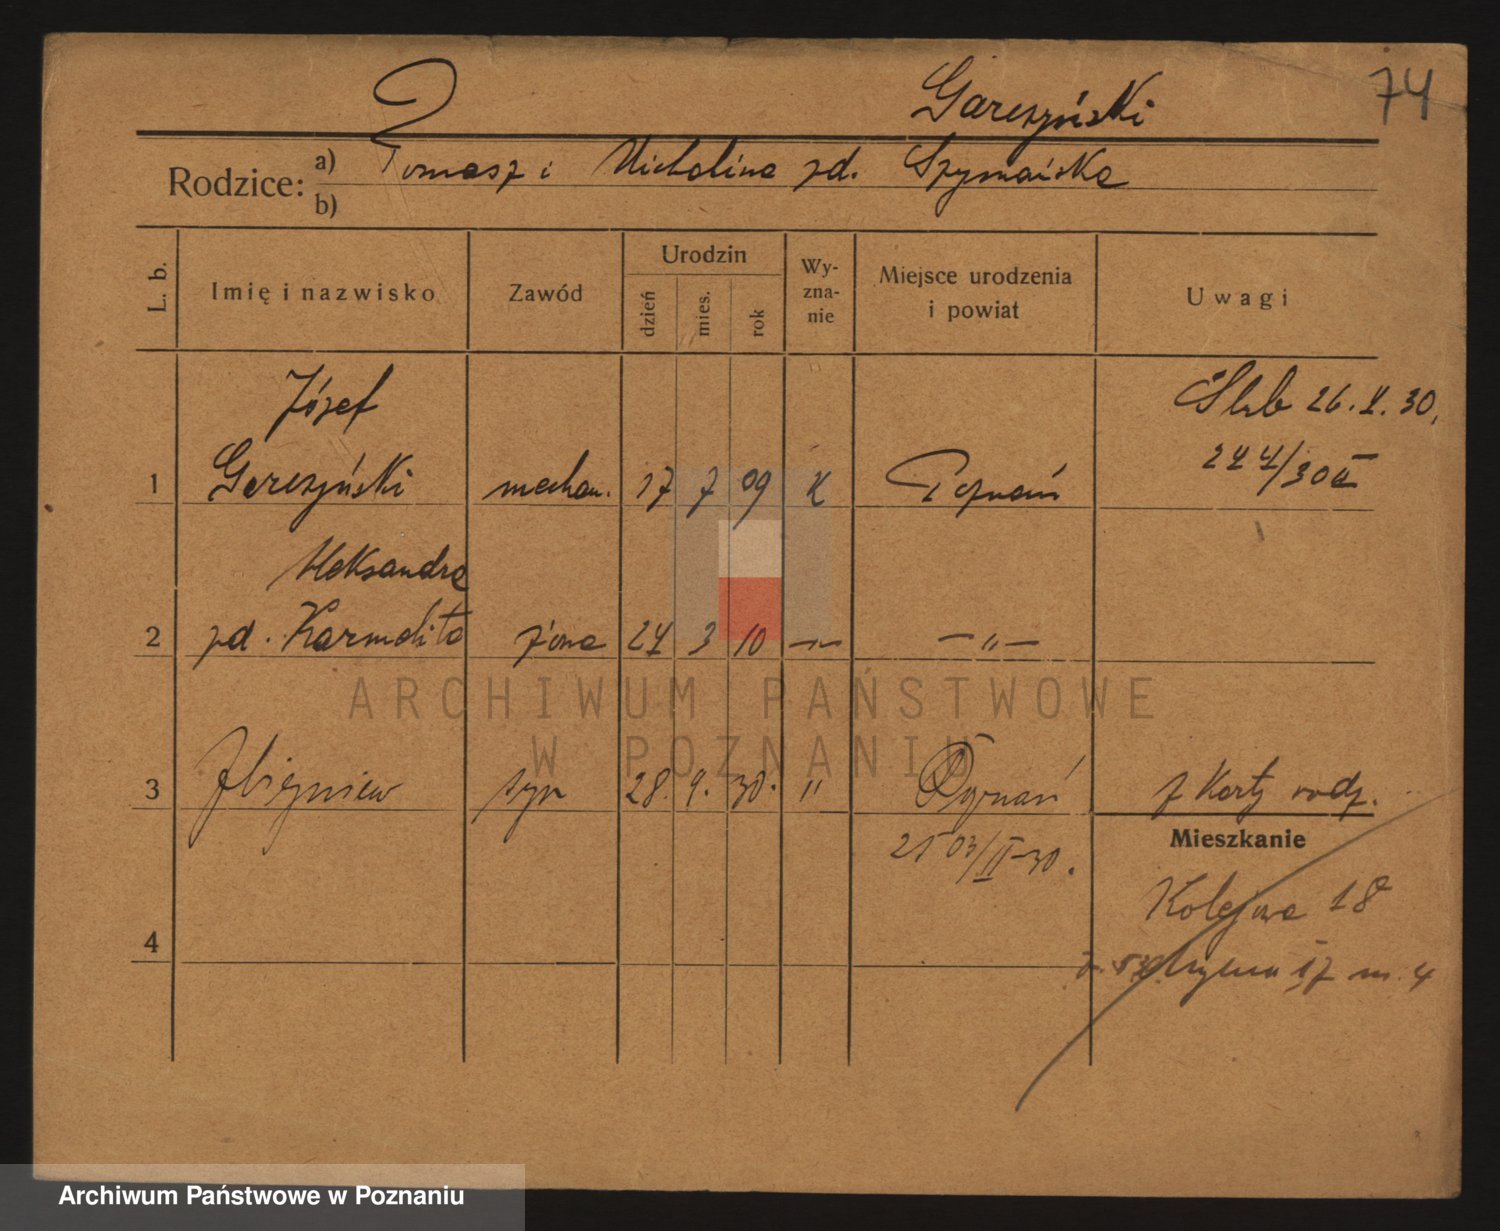 Garczyński 74
Rodzice: a) Tomasz i Michalina zd. Szymańska
b)
L. b. Imię i nazwisko Zawód Urodzin dzień mies. rok Wyznanie Miejsce urodzenia i powiat Uwagi
Józef Ślub 26. X. 30.
1 Garczyński mechan. 17 7 09 K Poznań 244/30 II
Aleksandra
2 zd. Karmolita żona 24 3 10 —"— —"—
3 Zbigniew syn 28. 9. 30. " Poznań z Karty rodz.
2503/II-30.
Mieszkanie
Kolejowa 18
4
17 m. 4
ARCHIWUM PAŃSTWOWE
W POZNANIU
Archiwum Państwowe w Poznaniu